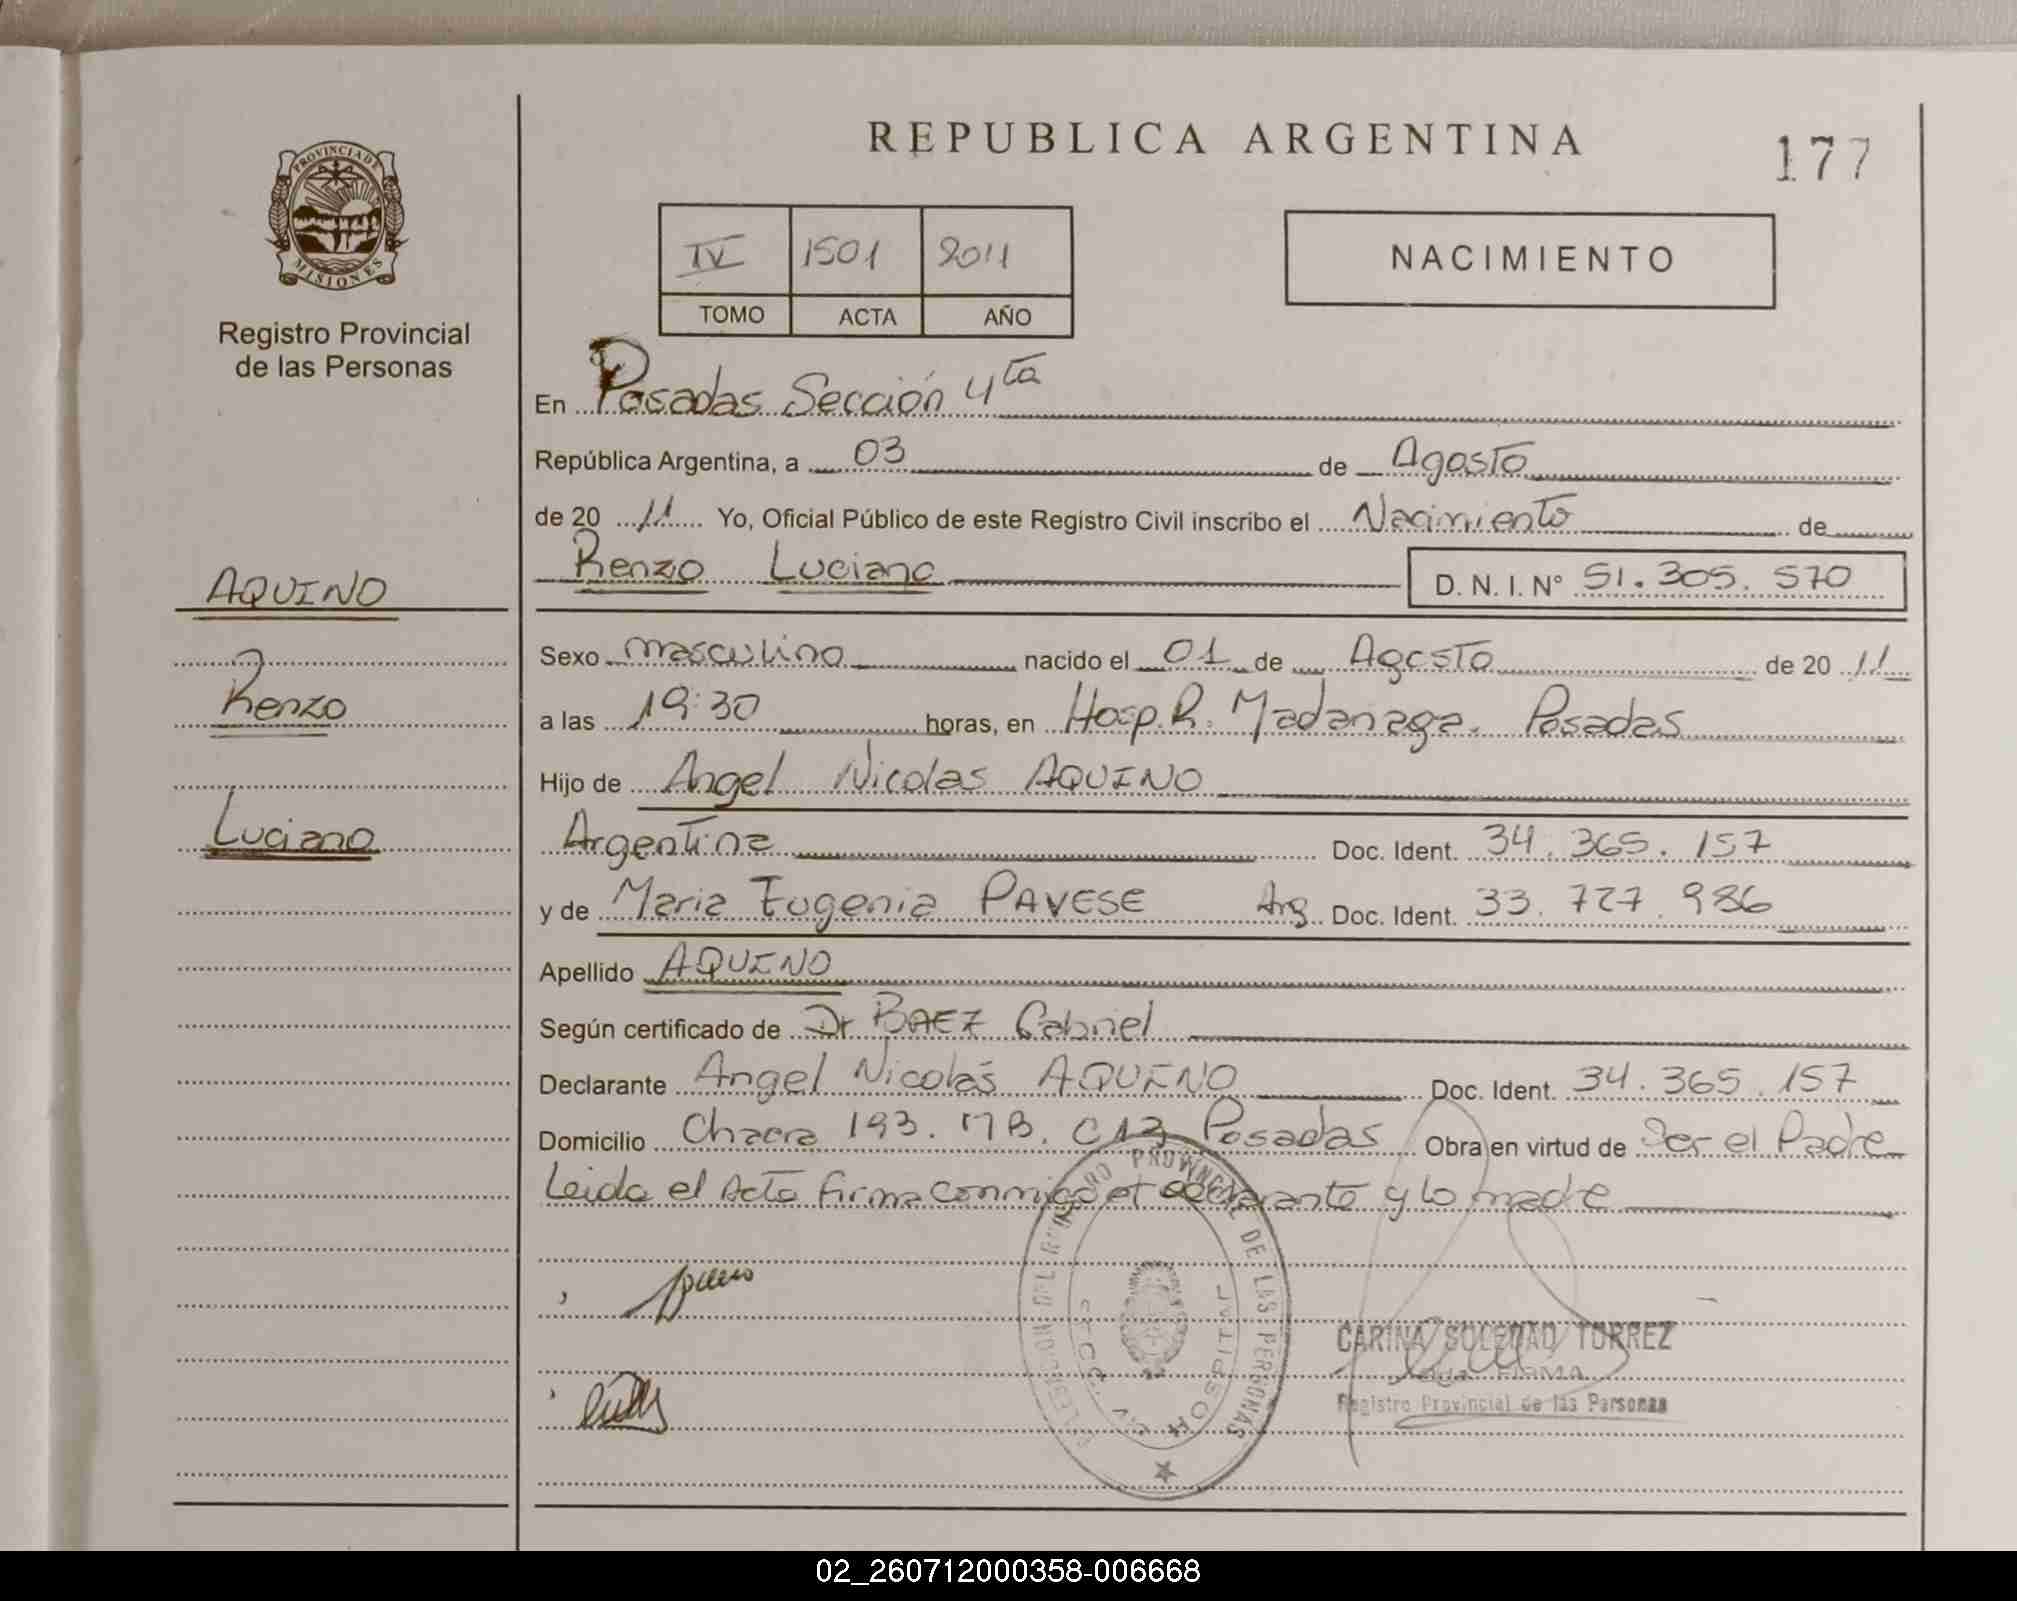 REPUBLICA ARGENTINA
177
PROVINCIA DE
MISIONES
Registro Provincial
de las Personas
IV 1501 2011
TOMO ACTA AÑO
NACIMIENTO
En Posadas Sección 4ta
República Argentina, a 03 de Agosto
de 20 11 Yo, Oficial Público de este Registro Civil inscribo el Nacimiento de
Renzo Luciano D. N. I. N° 51.305.570
AQUINO
Renzo
Luciano
Sexo masculino nacido el 01 de Agosto de 20 11
a las 19:30 horas, en Hosp. R. Madariaga. Posadas
Hijo de Angel Nicolas AQUINO
Argentina Doc. Ident. 34.365.157
y de Maria Eugenia PAVESE Arg. Doc. Ident. 33.727.986
Apellido AQUINO
Según certificado de Dr BAEZ Gabriel
Declarante Angel Nicolás AQUINO Doc. Ident. 34.365.157
Domicilio Chacra 193. MB. C13 Posadas Obra en virtud de Ser el Padre
Leida el Acta firma conmigo el declarante y la madre
DELEGACION DEL REGISTRO PROVINCIAL DE LAS PERSONAS
HOSPITAL
CARINA SOLEDAD TORREZ
FIRMA
Registro Provincial de las Personas
02_260712000358-006668